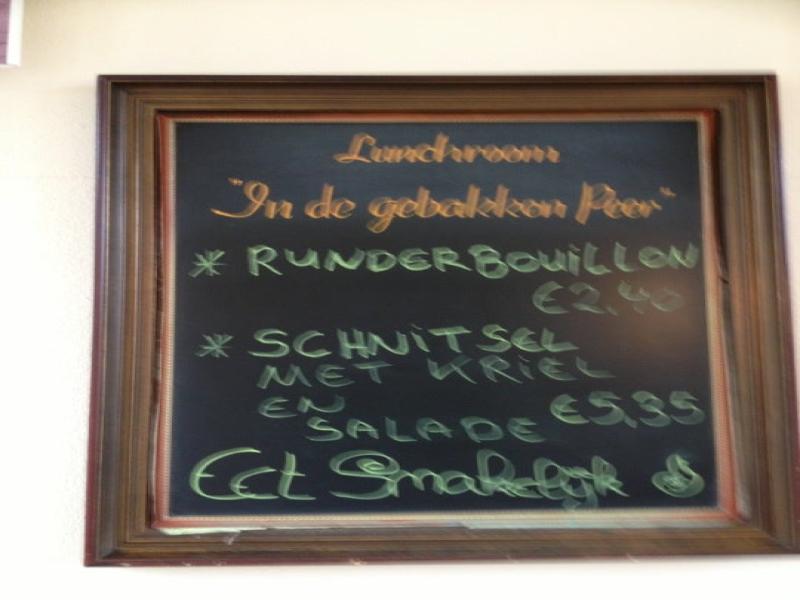 Lunchroom
"In de gebakken Peer"
* RUNDERBOUILLON
€2,40
* SCHNITSEL
MET KRIEL
EN
SALADE €5,35
Eet Smakelijk